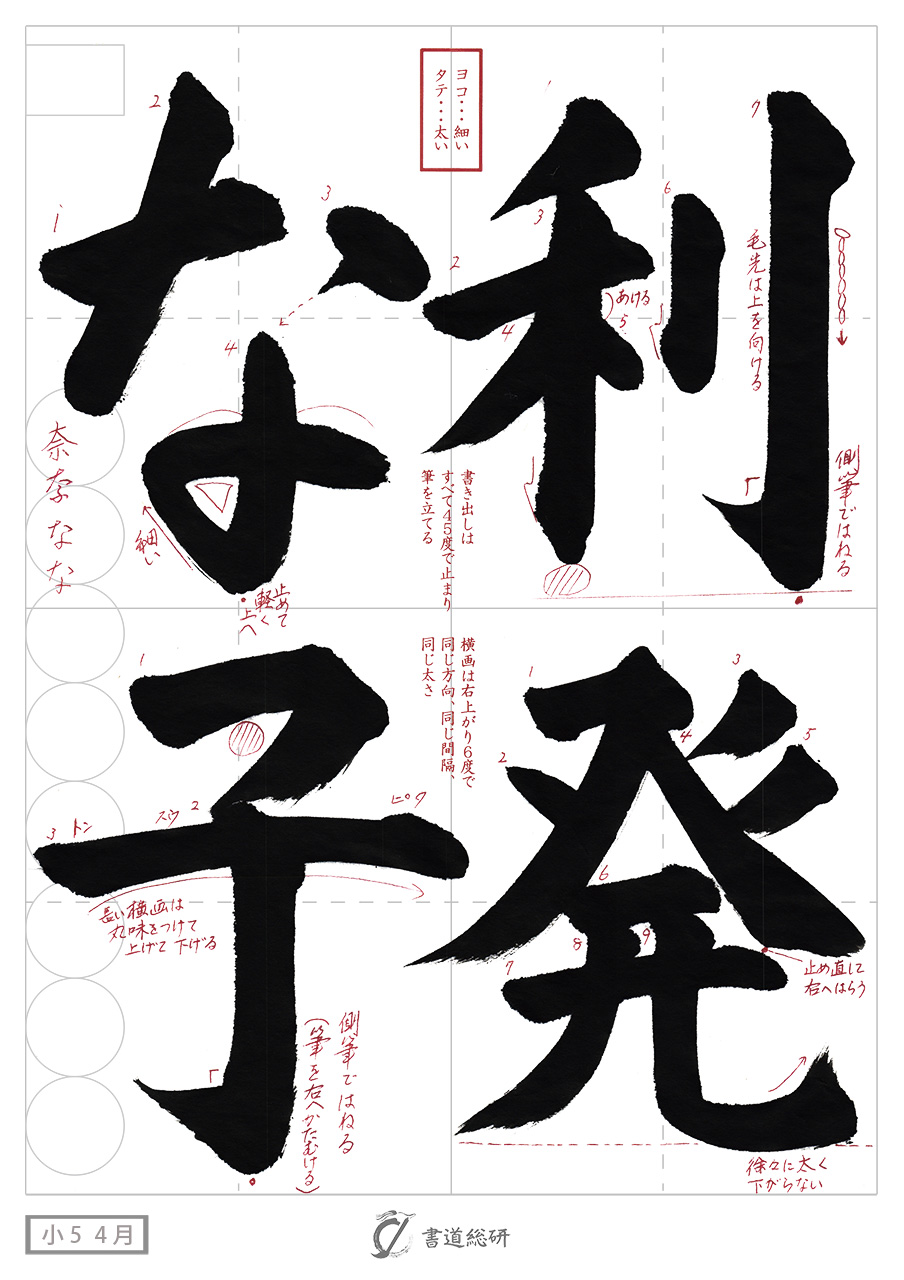 利発
な子
ヨコ・・・細い
タテ・・・太い
1
2
3
4
5
6
7
あける
毛先は上を向ける
側筆ではねる
書き出しは
すべて45度で止まり
筆を立てる
1
2
3
4
細い
止めて
軽く
上へ
奈なな な
横画は右上がり6度で
同じ方向、同じ間隔、
同じ太さ
1
2
3
4
5
6
7
8
9
止め直して
右へはらう
徐々に太く
下がらない
1
2
3
トン
スウ
ピク
長い横画は
丸味をつけて
上げて下げる
側筆ではねる
(筆を右へかたむける)
小5 4月
書道総研